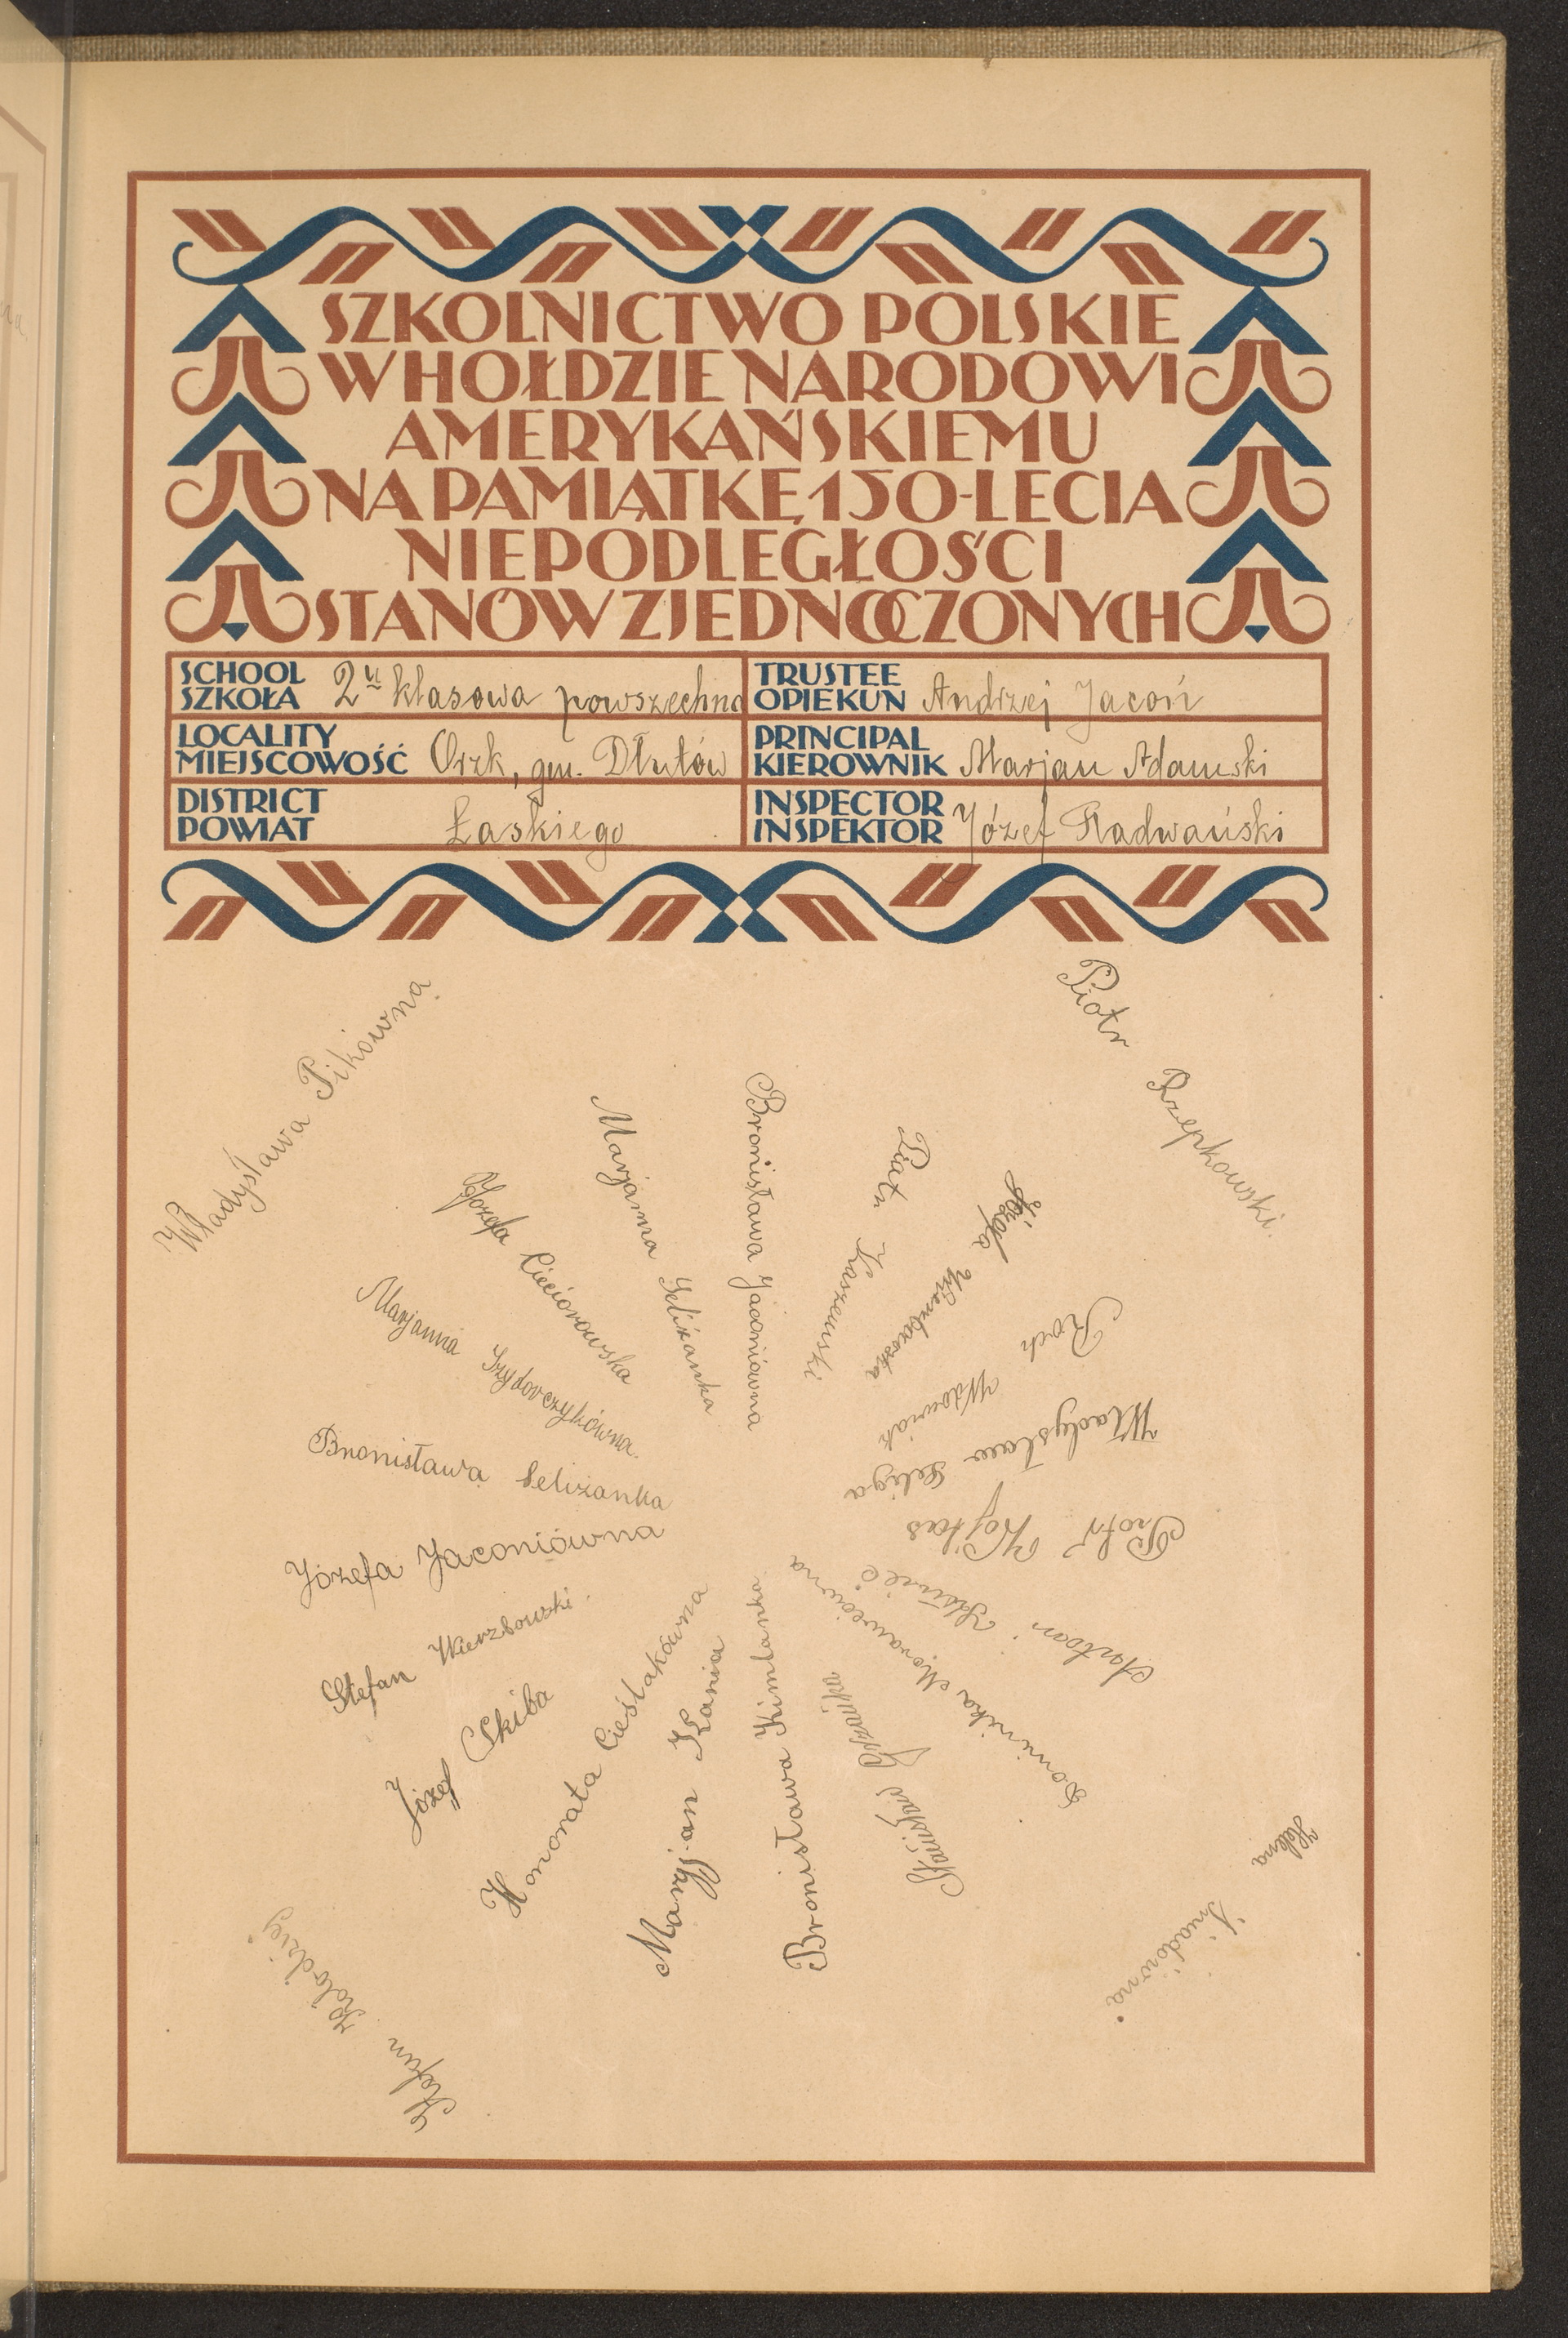 SZKOLNICTWO POLSKIE
W HOŁDZIE NARODOWI
AMERYKAŃSKIEMU
NA PAMIĄTKĘ 150-LECIA
NIEPODLEGŁOŚCI
STANÓW ZJEDNOCZONYCH
SCHOOL
SZKOŁA 2ᵘ klasowa powszechna
TRUSTEE
OPIEKUN Andrzej Jacoń
LOCALITY
MIEJSCOWOŚĆ Orzk, gm. Dłutów
PRINCIPAL
KIEROWNIK Marjan Adamski
DISTRICT
POWIAT Łaskiego
INSPECTOR
INSPEKTOR Józef Radwański
Władysława Pikówna
Piotr Rzepkowski
Bronisława Jaconiówna
Piotr Kaszewski
Józefa Wierzbowska
Roch Wdowiak
Władysław Seliga
Piotr Wojtas
Antoni
Dominika Morawcówna
Stanisław
Bronisława Kimlanka
Marjan Kania
Honorata Cieślakówna
Józef Skiba
Stefan Wierzbowski
Józefa Jaconiówna
Bronisława Seliżanka
Marjanna Izydorczykówna
Józefa Cieciorowska
Marjanna Seliżanka
Helena
Stefan Kołodziej